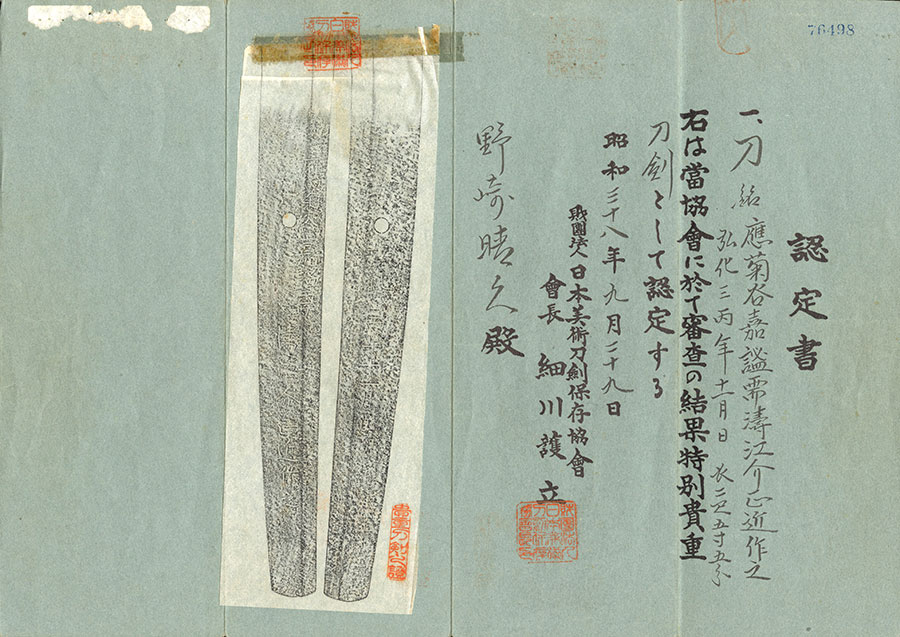 76498
認定書
一、刀 銘 應菊谷嘉謐需濤江介正近作之
弘化三丙年十一月日 長二尺五寸五分
右は當協會に於て審査の結果特別貴重
刀劍として認定する
昭和三十八年九月二十九日
財團法人日本美術刀劍保存協會
會長 細川護立
野崎晴久殿
貴重刀剣之證